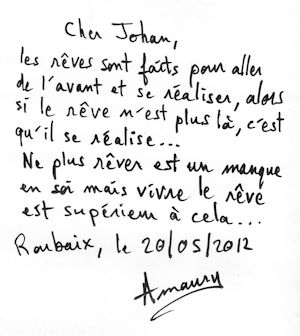 Cher Johan,
les rêves sont faits pour aller
de l'avant et se réaliser, alors
si le rêve n'est plus là, c'est
qu'il se réalise...
Ne plus rêver est un manque
en soi mais vivre le rêve
est supérieur à cela...
Roubaix, le 20/05/2012
Amaury